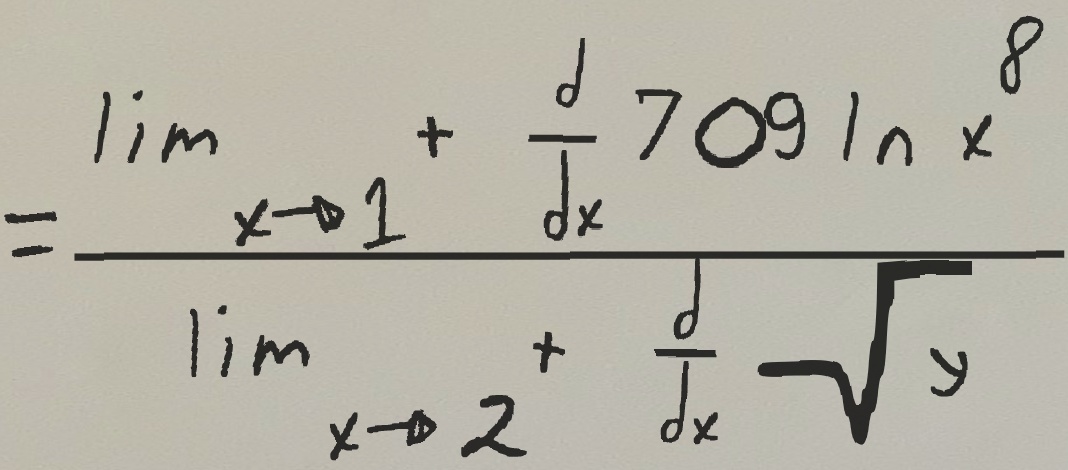 = lim x→1 + d/dx 709 ln x^8
lim x→2 + d/dx √y